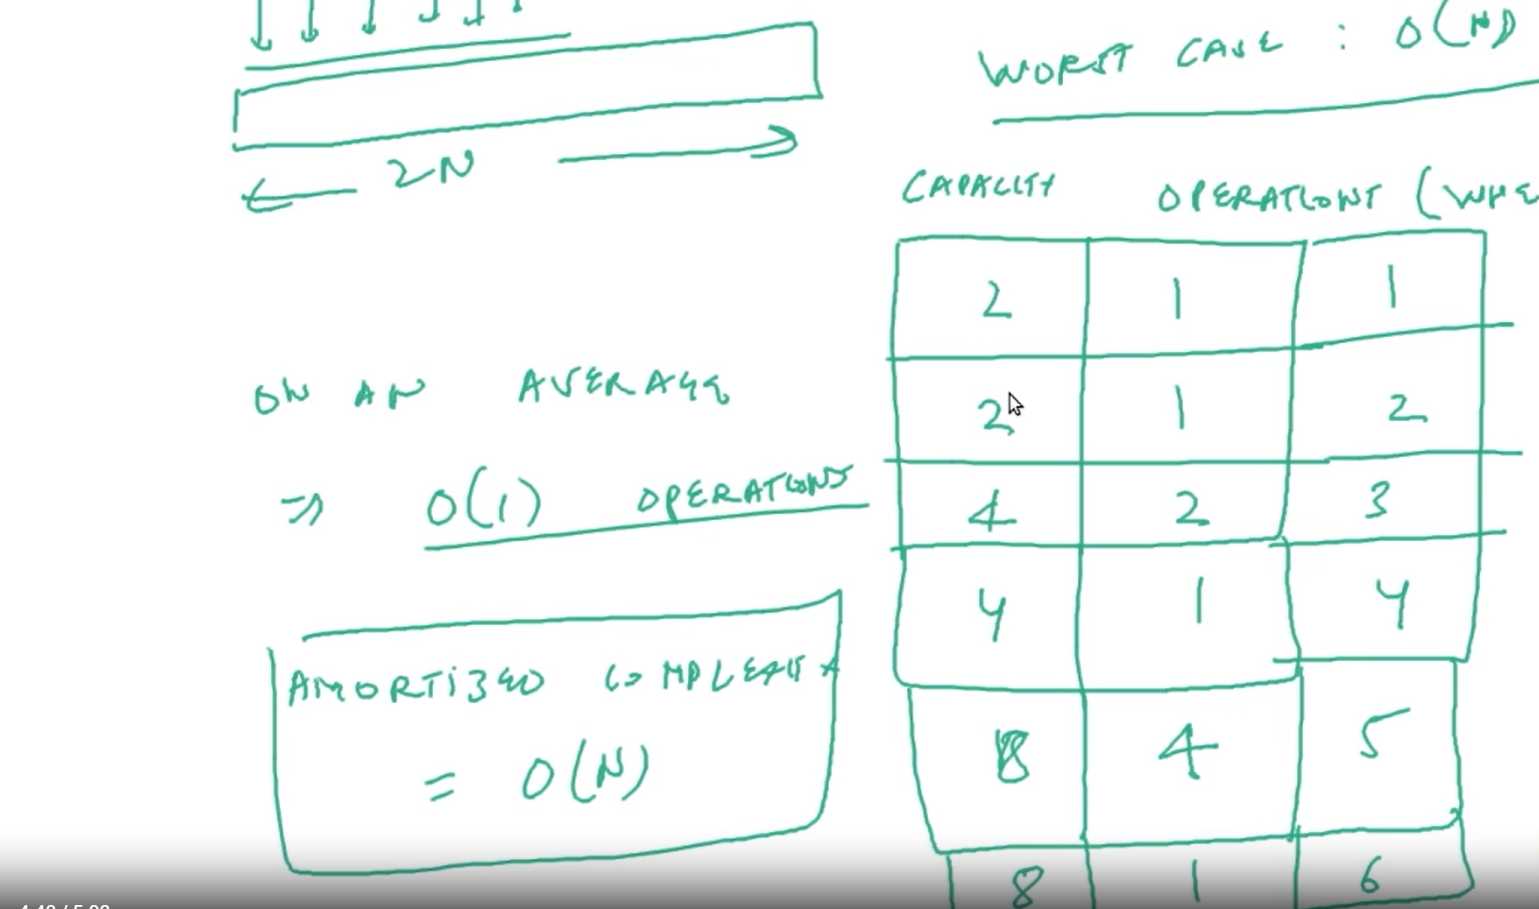 WORST CASE : O(N)
2N
CAPACITY OPERATIONS (WHE
2 1 1
2 1 2
4 2 3
4 1 4
8 4 5
8 1 6
ON AN AVERAGE
=> O(1) OPERATIONS
AMORTIZED COMPLEXITY
= O(N)